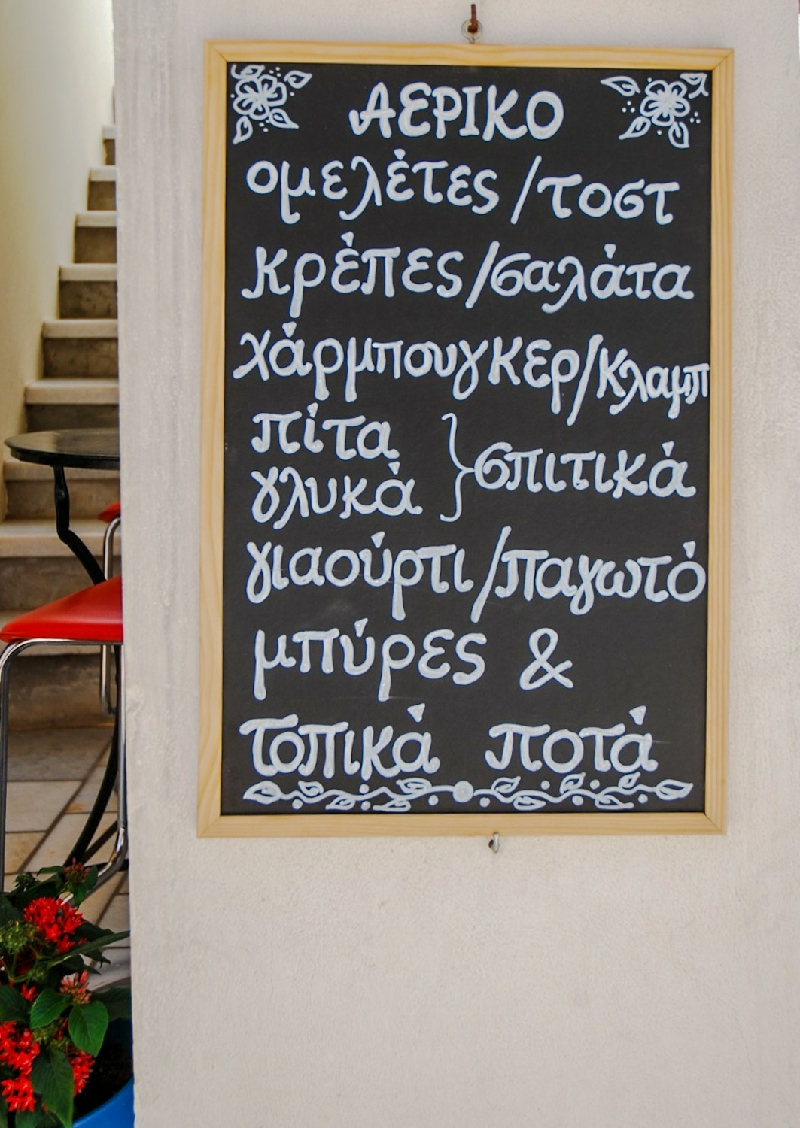 ΑΕΡΙΚΟ
ομελέτες/τοστ
κρέπες/σαλάτα
χάρμπουγκερ/κλαμπ
πίτα
γλυκά } σπιτικά
γιαούρτι/παγωτό
μπύρες &
τοπικά ποτά